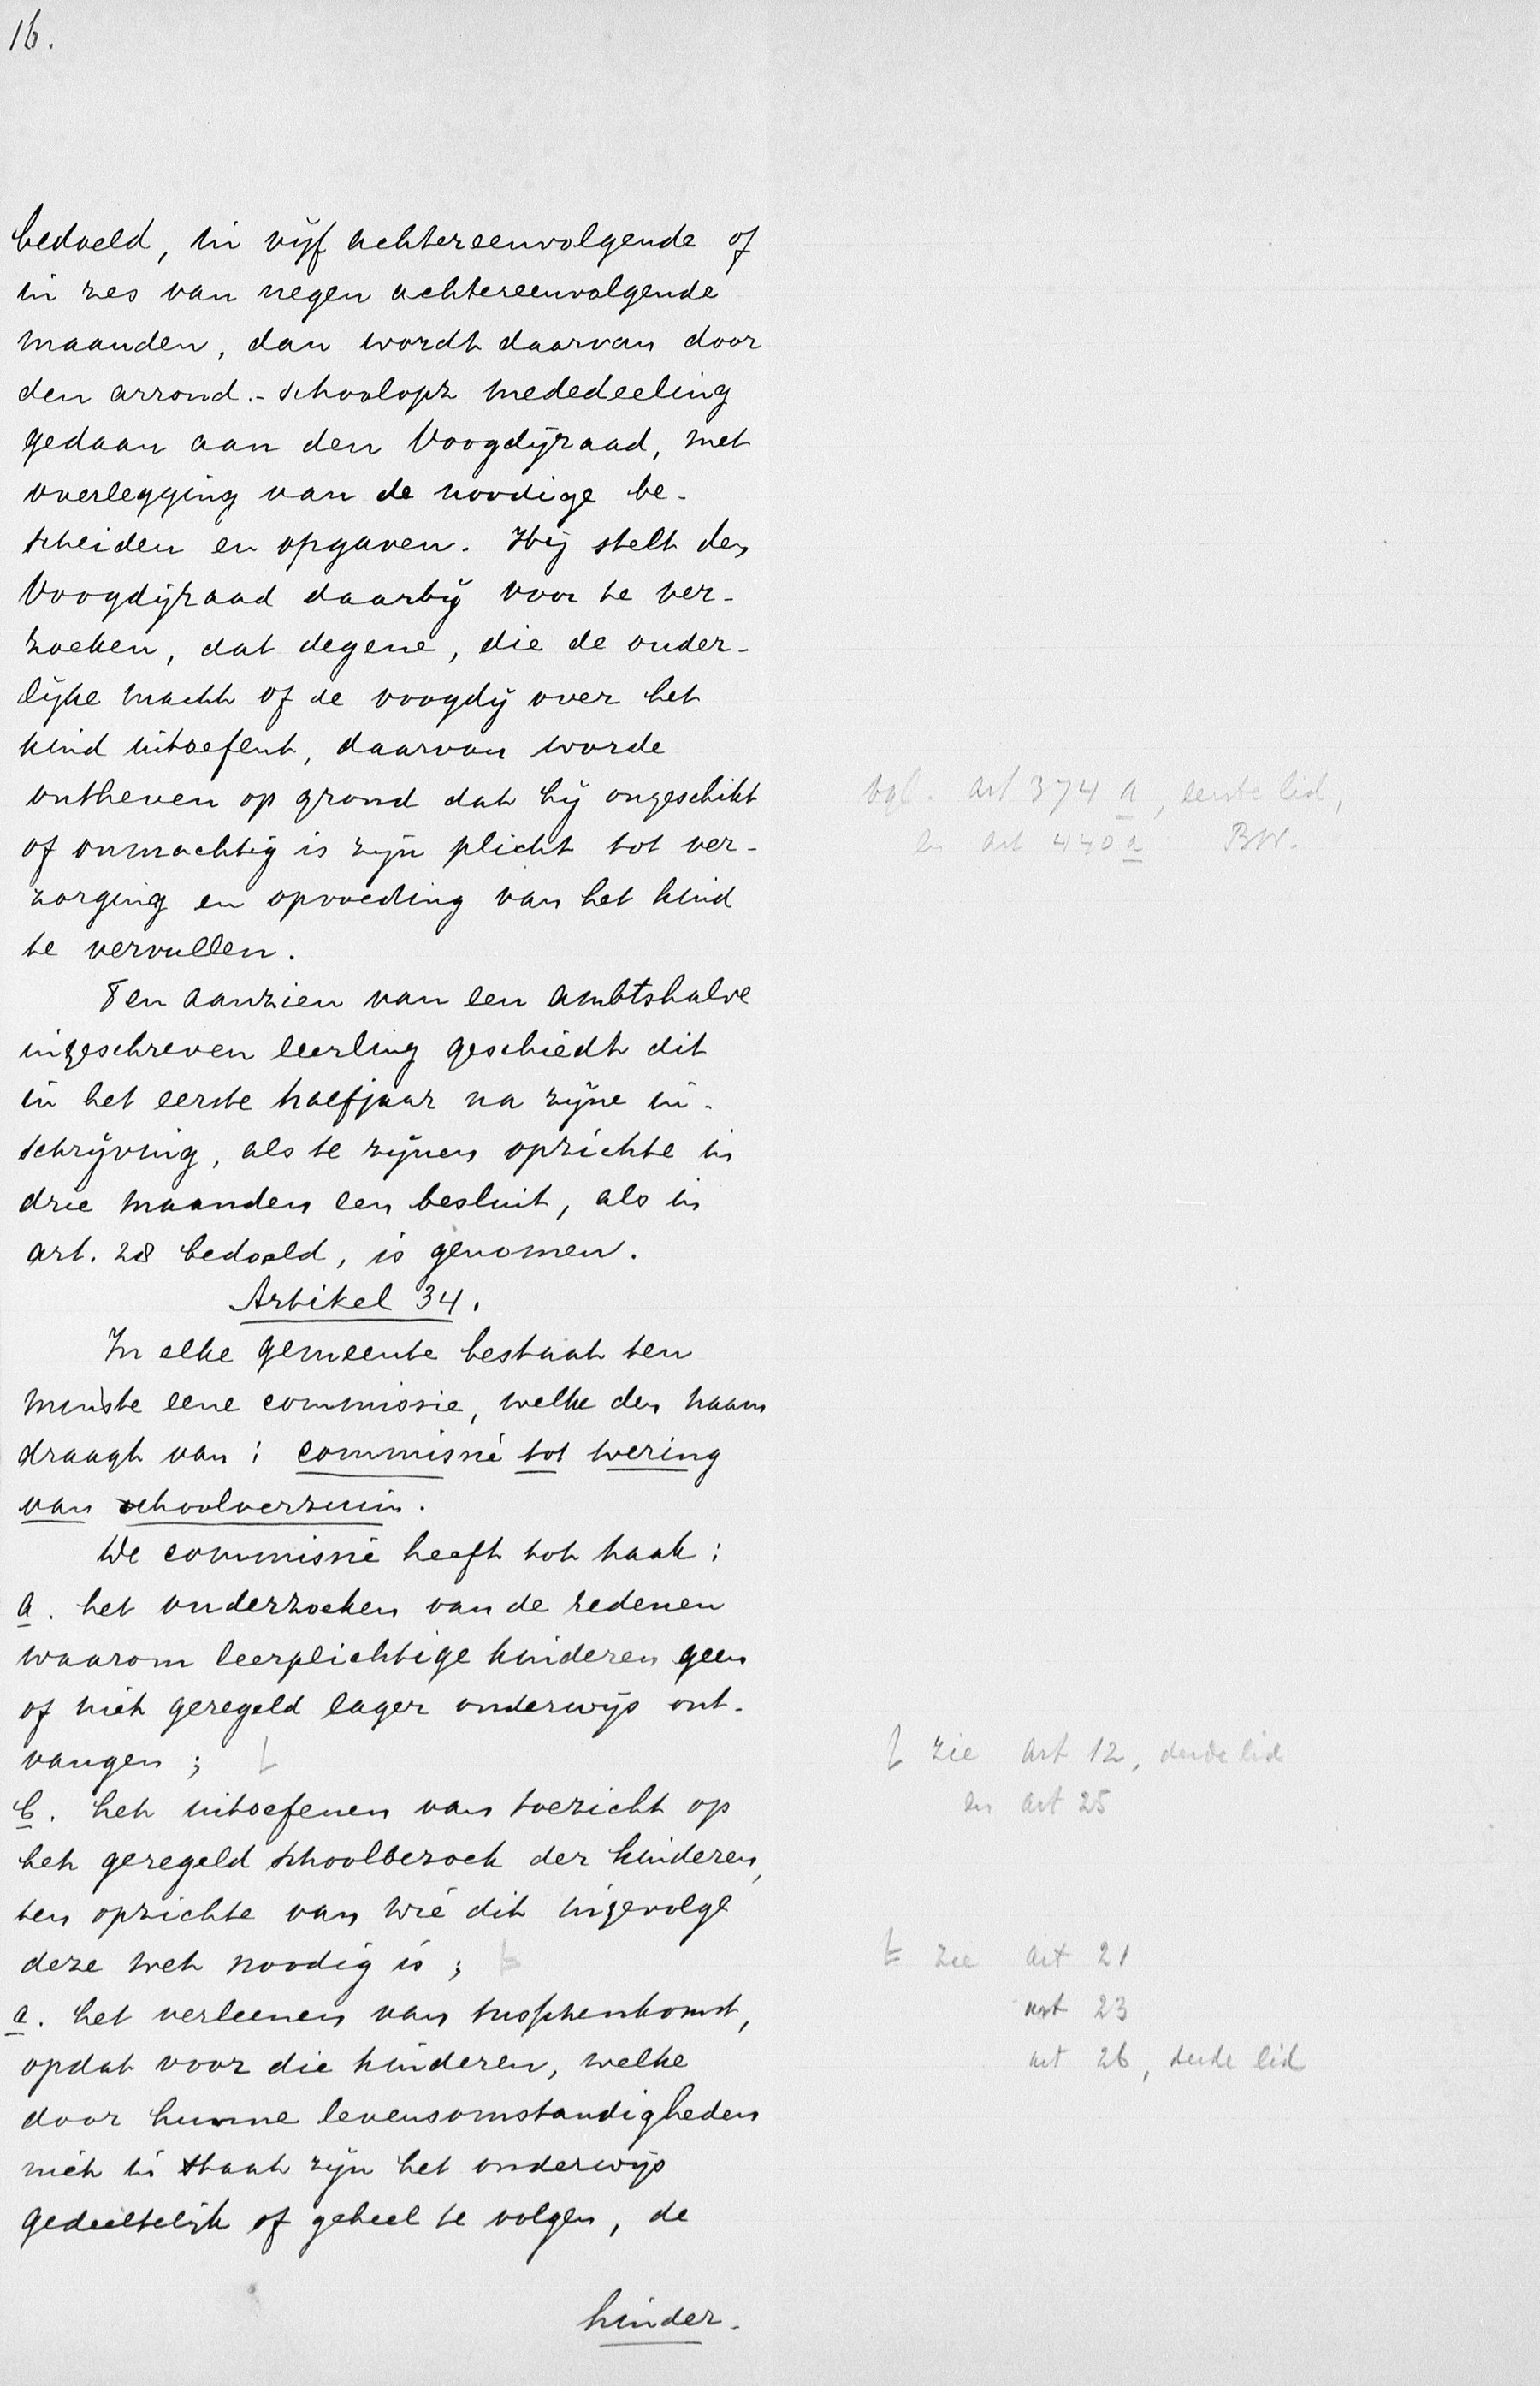 16.
bedoeld, in vijf achtereenvolgende of
in zes van negen achtereenvolgende
maanden, dan wordt daarvan door
den arrond.-schoolopz mededeeling
gedaan aan den Voogdijraad, met
overlegging van de noodige be-
scheiden en opgaven. Hij stelt den
Voogdijraad daarbij voor te ver-
zoeken, dat degene, die de ouder-
lijke macht of de voogdij over het
kind uitoefent, daarvan worde
ontheven op grond dat hij ongeschikt
of onmachtig is zijn plicht tot ver-
zorging en opvoeding van het kind
te vervullen.
vgl. art 374 a, eerste lid,
en art 440 a BW.
Ten aanzien van een ambtshalve
ingeschreven leerling geschiedt dit
in het eerste halfjaar na zijne in-
schrijving, als te zijnen opzichte in
drie maanden een besluit, als in
art. 28 bedoeld, is genomen.
Artikel 34.
In elke gemeente bestaat ten
minste eene commissie, welke den naam
draagt van: commissie tot wering
van schoolverzuim.
De commissie heeft tot taak:
a. het onderzoeken van de redenen
waarom leerplichtige kinderen geen
of niet geregeld lager onderwijs ont-
vangen;
zie art 12, derde lid
en art 25
b. het uitoefenen van toezicht op
het geregeld schoolbezoek der kinderen,
ten opzichte van wie dit ingevolge
deze wet noodig is;
zie art 21
art 23
art 26, derde lid
c. het verleenen van tusschenkomst,
opdat voor die kinderen, welke
door hunne levensomstandigheden
niet in staat zijn het onderwijs
gedeeltelijk of geheel te volgen, de
hinder-